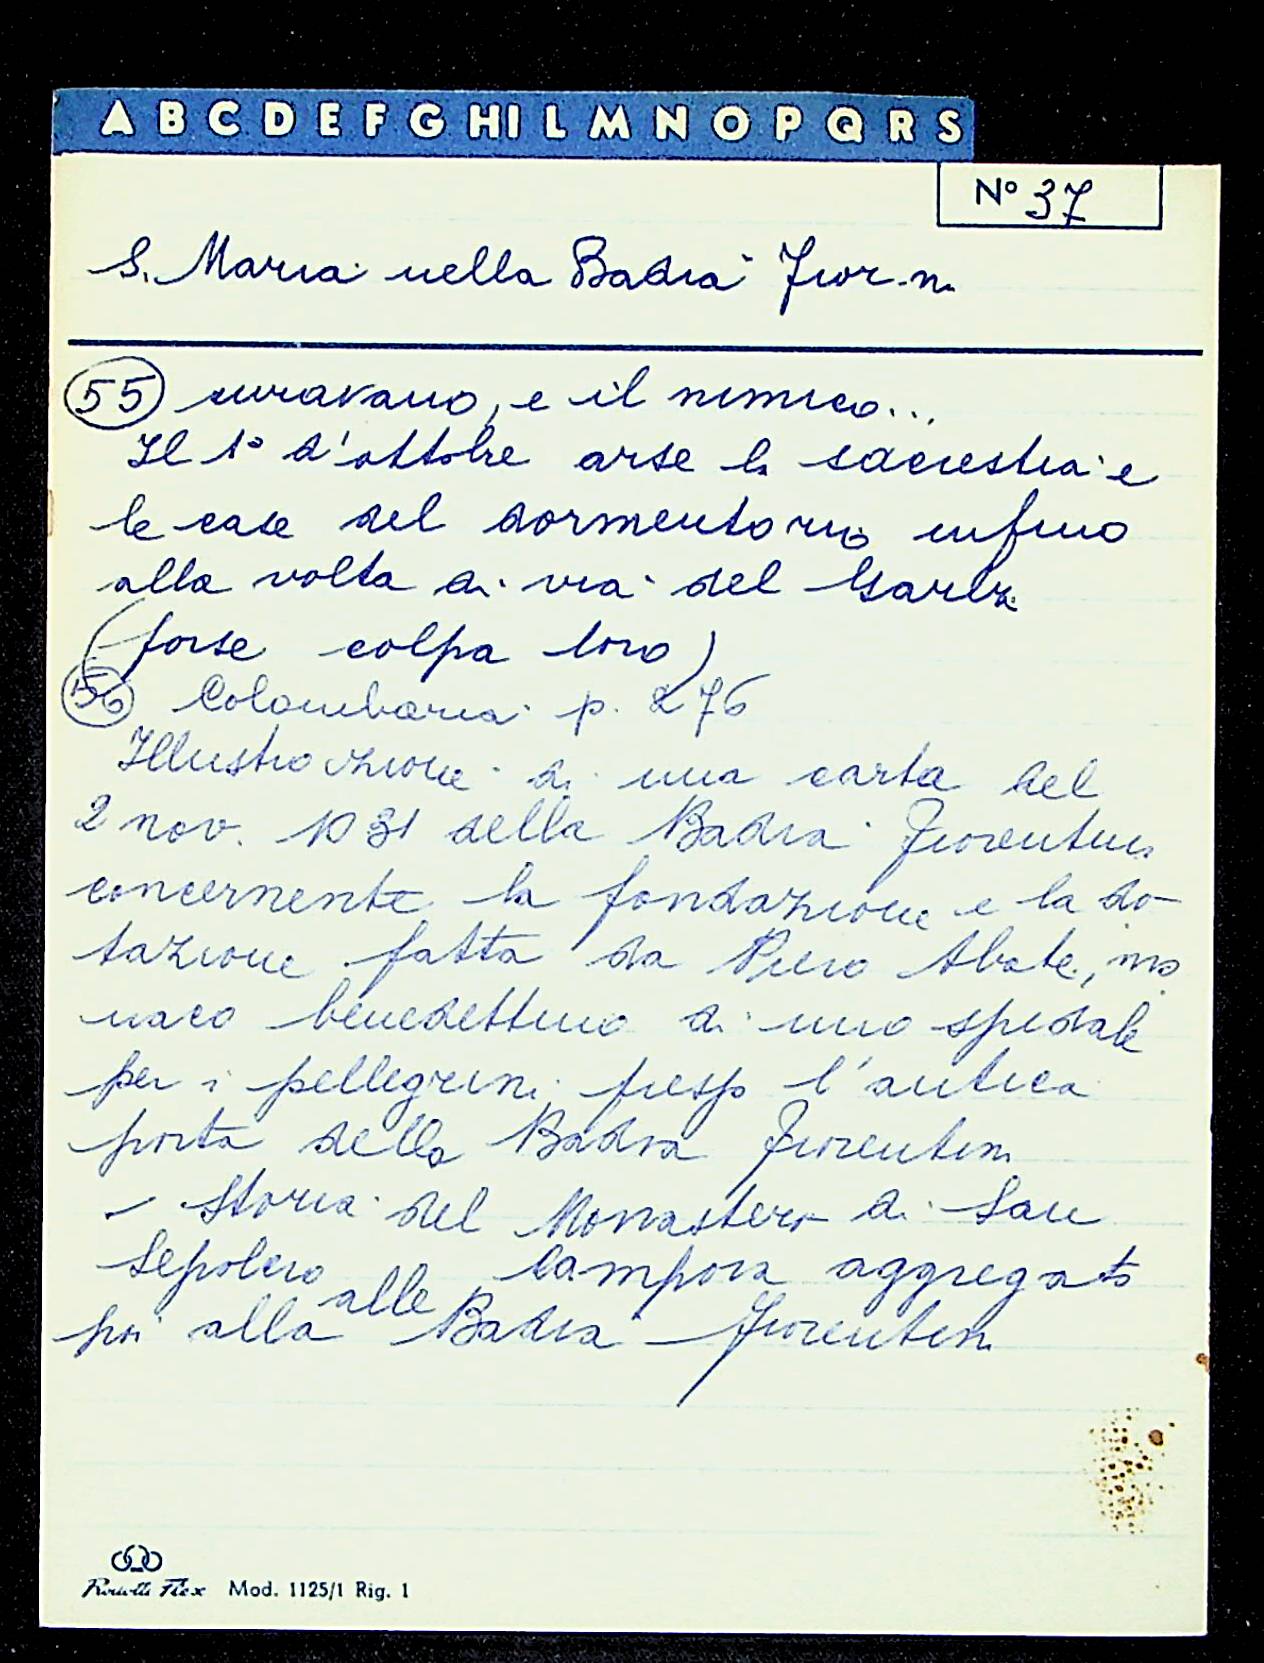 A B C D E F G H I L M N O P Q R S
N° 37
S. Maria nella Badia Fior.na
55 curavano, e il nimico...
Il 1° d'ottobre arse la sacrestia e
le case del dormentorio infino
alla volta di via del Garbo
(forse colpa loro)
56 Colombaria p. 276
Illustrazione di una carta del
2 nov. 1031 della Badia Fiorentina
concernente la fondazione e la do-
tazione fatta da Piero Abate, mo
naco benedettino di uno spedale
per i pellegrini presso l'antica
porta della Badia Fiorentina
- Storia del Monastero di San
Sepolcro alle Campora aggregato
poi alla Badia Fiorentina
Flex Mod. 1125/1 Rig. 1